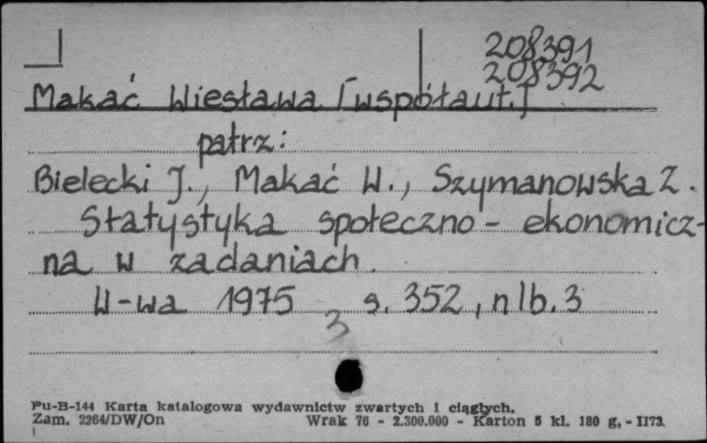 208391
208392
Makać Wiesława [współaut.]
patrz:
Bielecki J., Makać W., Szymanowska Z.
Statystyka społeczno-ekonomicz-
na w zadaniach.
W-wa 1975 s. 352, nlb. 3
3
Pu-B-144 Karta katalogowa wydawnictw zwartych i ciągłych.
Zam. 2264/DW/On Wrak 76 - 2.300.000 - Karton 5 kl. 180 g, - II73.